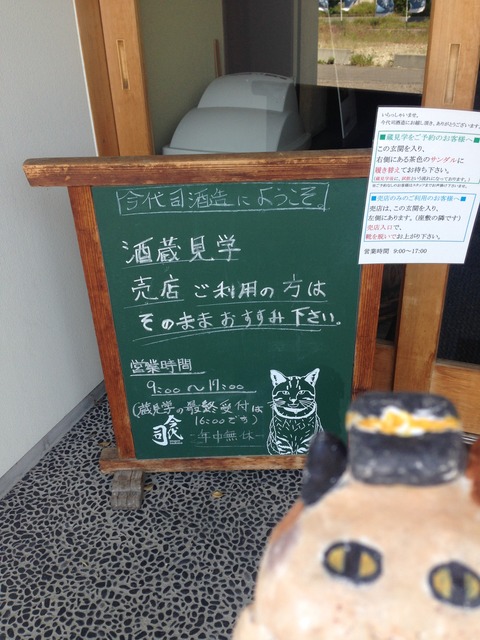 今代司酒造にようこそ。
酒蔵見学
売店 ご利用の方は
そのままおすすみ下さい。
営業時間
9:00～17:00
(蔵見学の最終受付は
16:00です)
今代司
年中無休
いらっしゃいませ。
今代司酒造にお越し頂き、ありがとうございます。
■蔵見学をご予約のお客様へ■
この玄関を入り、
右側にある茶色のサンダルに
履き替えてお待ち下さい。
■売店のみのご利用のお客様へ■
売店は、この玄関を入り、
左側にあります。(座敷の隣です)
売店入口で、
靴を脱いでお上がり下さい。
営業時間 9:00～17:00